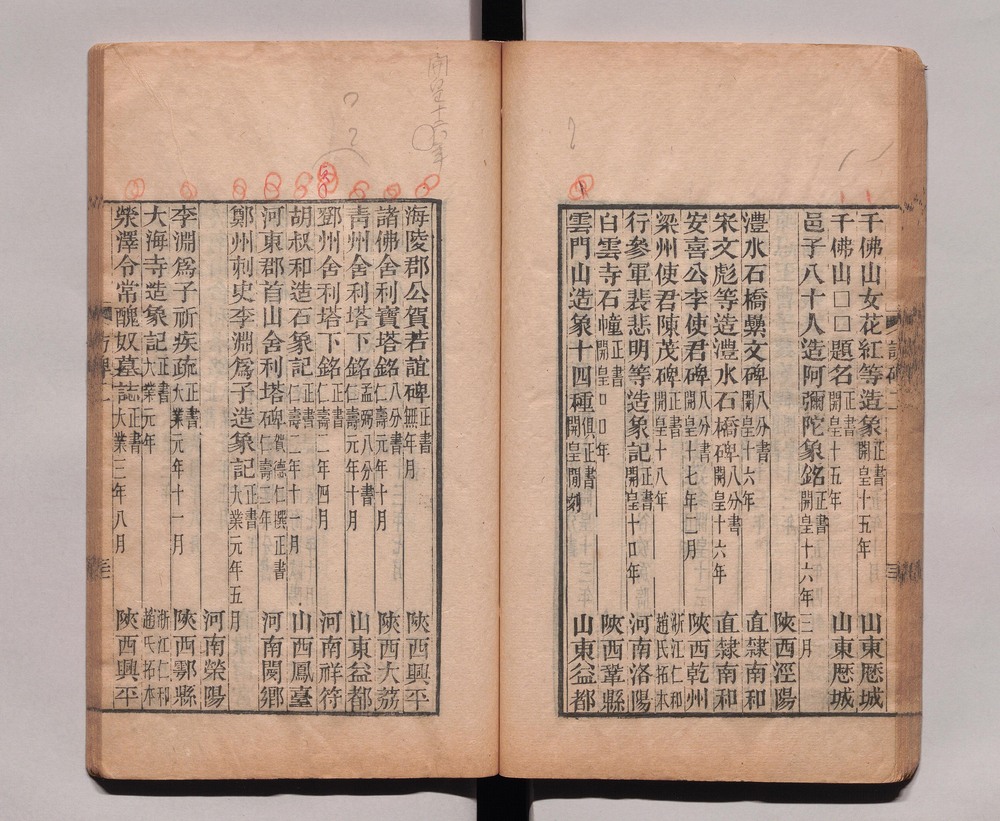 千佛山女花紅等造象 正書 開皇十五年 山東歷城
千佛山□□題名 正書 開皇十五年 山東歷城
邑子八十人造阿彌陀象銘 正書 開皇十六年三月
陝西涇陽
澧水石橋纍文碑 八分書 開皇十六年 直隸南和
宋文彪等造澧水石橋碑 八分書 開皇十六年 直隸南和
安喜公李使君碑 八分書 開皇十七年二月 陝西乾州
梁州使君陳茂碑 正書 開皇十八年 浙江仁和趙氏拓本
行參軍裴悲明等造象記 開皇十□年 河南洛陽
白雲寺石幢 正書 開皇□□年 陝西鞏縣
雲門山造象十四種 俱正書 開皇間刻 山東益都
海陵郡公賀若誼碑 正書 無年月 陝西興平
諸佛舍利寶塔銘 八分書 仁壽元年十月 陝西大荔
青州舍利塔下銘 孟弼八分書 仁壽元年十月 山東益都
鄧州舍利塔下銘 正書 仁壽二年四月 河南祥符
胡叔和造石象記 正書 仁壽二年十一月 山西鳳臺
河東郡首山舍利塔碑 賀德仁撰正書 仁壽三年 河南閿鄉
鄭州刺史李淵爲子造象記 正書 大業元年五月
河南滎陽
李淵爲子祈疾疏 正書 大業元年十一月 陝西鄠縣
大海寺造象記 正書 大業元年 浙江仁和趙氏拓本
滎澤令常醜奴墓誌 正書 大業三年八月 陝西興平
開皇十六年
訪碑二
三